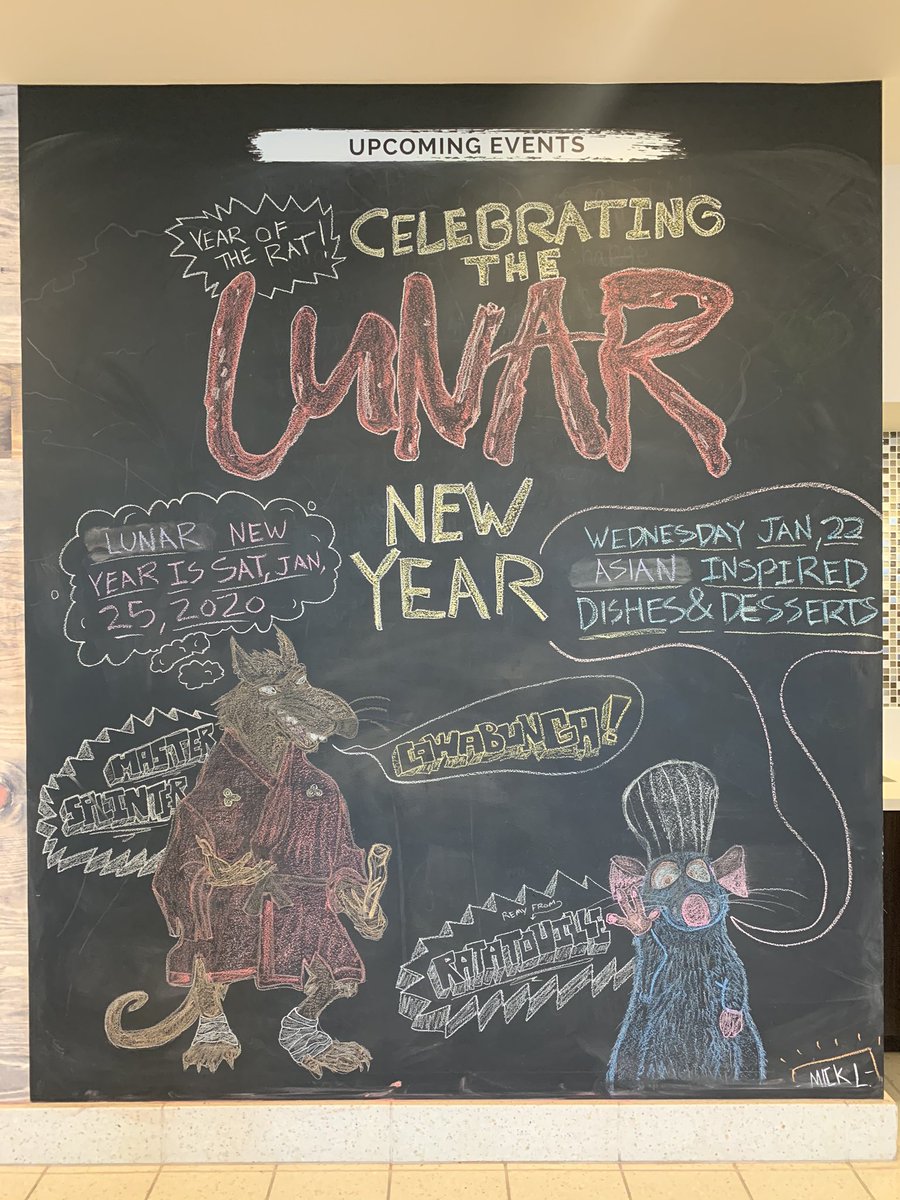 UPCOMING EVENTS
YEAR OF
THE RAT!
CELEBRATING
THE
LUNAR
NEW
YEAR
LUNAR NEW
YEAR IS SAT, JAN,
25, 2020
WEDNESDAY JAN, 22
ASIAN INSPIRED
DISHES & DESSERTS
MASTER
SPLINTER
COWABUNGA!
REMY FROM
RATATOUILLE
MICK L-